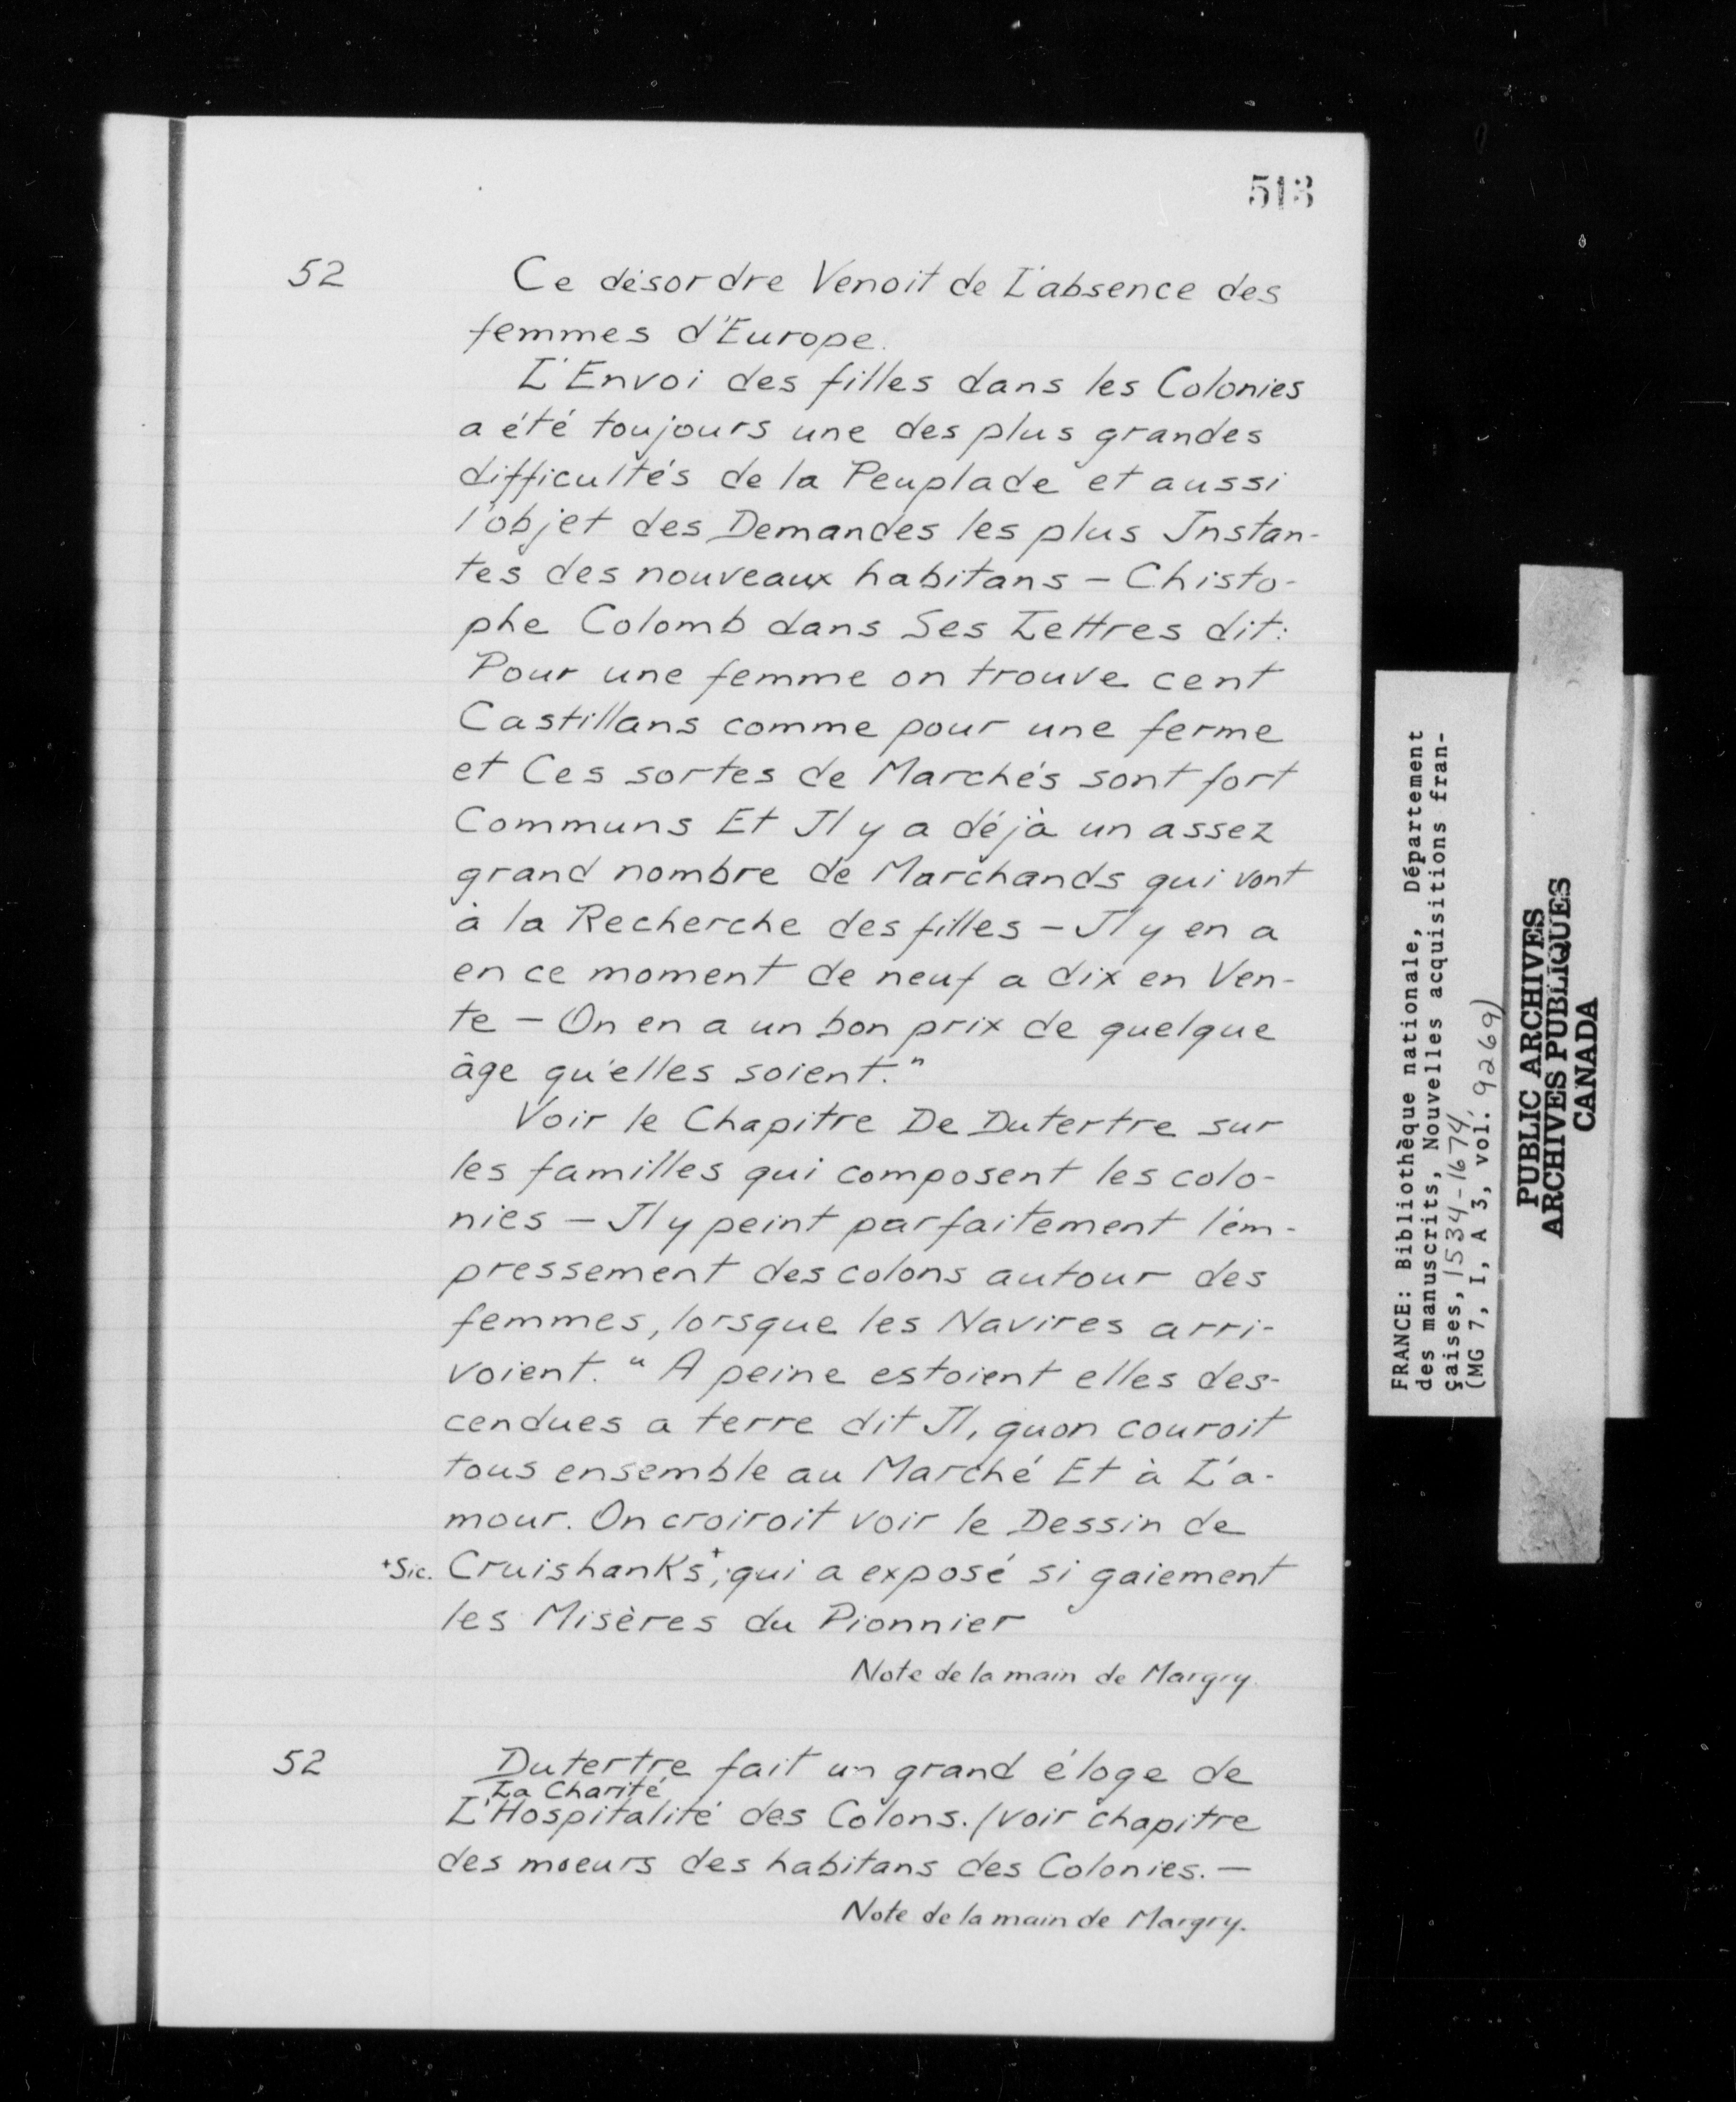 513
52 Ce désordre Venoit de L'absence des
femmes d'Europe.
L'Envoi des filles dans les Colonies
a été toujours une des plus grandes
difficultés de la Peuplade et aussi
l'objet des Demandes les plus Instan-
tes des nouveaux habitans — Chisto-
phe Colomb dans Ses Lettres dit:
Pour une femme on trouve cent
Castillans comme pour une ferme
et Ces sortes de Marchés sont fort
Communs Et Il y a déjà un assez
grand nombre de Marchands qui vont
à la Recherche des filles — Il y en a
en ce moment de neuf a dix en Ven-
te — On en a un bon prix de quelque
âge qu'elles soient."
Voir le Chapitre De Dutertre sur
les familles qui composent les colo-
nies — Il y peint parfaitement l'em-
pressement des colons autour des
femmes, lorsque les Navires arri-
voient. " A peine estoient elles des-
cendues a terre dit Il, quon couroit
tous ensemble au Marché Et à L'a-
mour. On croiroit voir le Dessin de
+Sic. Cruishanks+, qui a exposé si gaiement
les Misères du Pionnier
Note de la main de Margry.
52 Dutertre fait un grand éloge de
La Charité
L'Hospitalité des Colons. (voir chapitre
des moeurs des habitans des Colonies. —
Note de la main de Margry.
FRANCE: Bibliothèque nationale, Département
des manuscrits, Nouvelles acquisitions fran-
çaises, 1534-1674
(MG 7, I, A 3, vol. 9269)
PUBLIC ARCHIVES
ARCHIVES PUBLIQUES
CANADA